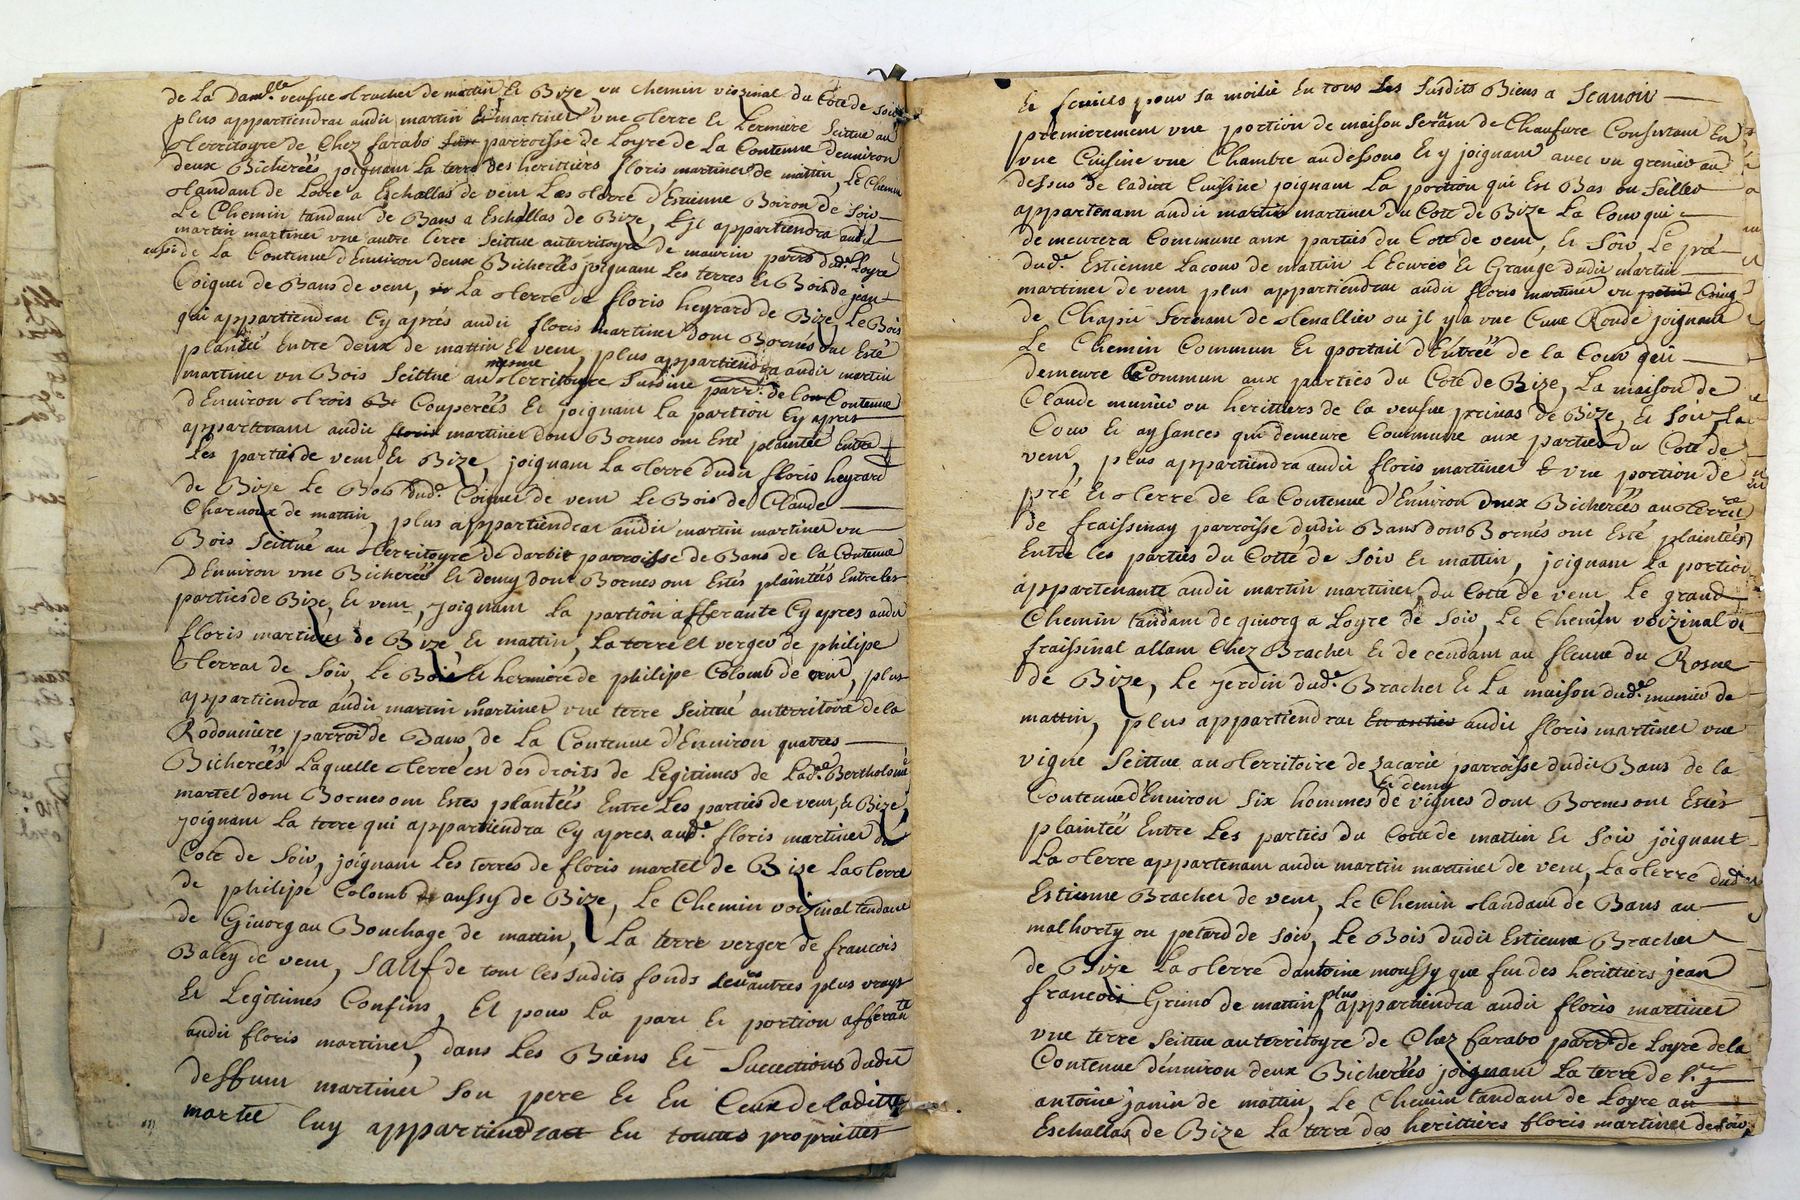 de La Dam.lle veufue Bracher de mattin Et Bize vn chemin viozinal du Cote de soir
plus appartiendrat audit martin martinet vne Terre Et hermiere scittue au
Territoyre de Chez farabo parroisse de Loyre de La Contenue d'enuiron
deux Bicherées joignant La terre des herittiers floris martinet de mattin, Le Chemin
tandant de Loire a Eschallas de vent Las Terre d'Estienne Boiron de soir
Le Chemin tandant de Bans a Eschallas de Bize, Et appartiendra audit
martin martinet vne autre Terre scittue auterritoyre de maurin parr.se dud. Loyre
aussi de La Contenue d'Enuiron deux Bicherées joignant Les terres Et Bois de jean
Coignet de Bans de vent, La Terre de floris heyrard de Bize, Le Bois
qui appartiendrat Cy aprés audit floris martinet dont Bornes ont Esté
plantée Entre deux de mattin Et vent, plus appartiendra audit martin
martinet vn Bois scittue au mesme Territoyre Susdine parr. de la Contenue
d'Enuiron trois Couperées Et joignant La partion Cy apres
appartenant audit floris martinet dont Bornes ont Esté plaintée Entre
Les parties de vent Et Bize, joignant La Terre dudit floris heyrard
de Bize Le Bois dud. Coignet de vent Le Bois de Claude
Charnoux de mattin, plus appartiendrat audit martin martinet vn
Bois scittué au Territoyre de darbie parroisse de Bans de la Contenue
D'Enuiron vne Bicherée Et demy dont Bornes ont Estés plaintées Entre Les
parties de Bize, Et vent, joignant La partion afferante Cy apres audit
floris martinet de Bize Et mattin, La terre Et verger de philipe
Terrat de soir, Le Bois Et hermiére de philipe Colomb de vent, plus
appartiendra audit martin martinet vne terre scittué auterritoire de la
Rodonniere parroi de Bans, de La Contenue d'Enuiron quatres
Bicherées Laquelle Terre est des droits de Legitimes de Lad.e Bertholomé
martel dont Bornes ont Estes plantées Entre Les parties de vent, Et Bize,
joignant La terre qui appartiendra Cy apres aud. floris martinet du
Cote de Soir, joignant Les terres de floris martel de Bize La Terre
de philipe Colomb aussy de Bize, Le Chemin voizinal tendant
de Giuorg au Bouchage de mattin, La terre verger de francois
Baley de vent, Sauf de tout les sudits fonds leurs autres plus vrays
Et Legitimes Confins, Et pour La part Et portion afferante
audit floris martinet, dans Les Biens Et Successions dudit
deffunt martinet Son pere Et En Ceux de laditte
martel luy appartiendrat En touttes proprietées
Et fruits pour sa moitié En tous Les susdits Biens a Scauoir
premierement vne portion de maison seruant de Chaufure Consistant En
vne Cuisine vne Chambre audessous Et y joignant auec vn grenier au
dessus de laditte Cuisine joignant La portion qui Est Bas ou Scillier
appartenant audit martin martinet du Cote de Bize La Cour qui
demeurera Commune aux parties du Cote de vent, Et soir, Le pré
dud. Estienne Lacour de mattin L'Ecurée Et Grange dudit martin
martinet de vent plus appartiendrat audit floris martinet vn petit Coing
de Chapit seruant de Tenallier ou jl y a vne Cuue Ronde joignant
Le Chemin Commun Et portail d'Entrée de la Cour qui
demeure Commun aux parties du Cote de Bize, La maison de
Claude munier ou heritiers de la veufue prinas de Bize, Et soir, La
Cour Et aysances qui demeure Commune aux parties du Cote de
vent, plus appartiendra audit floris martinet Et vne portion de
pré Et Terre de la Contenue d'Enuiron deux Bicherées au Terr.re
de fraissinay parroisse dudit Bans dont Bornés ont Esté plaintées
Entre les parties du Cotte de soir Et mattin, joignant La portion
appartenante audit martin martinet, du Cotte de vent Le grand
Chemin tandant de giuorg a Loyre de soir, Le Chemin voizinal de
fraissinat allant Chez Bracher Et de cendant au fleuue du Rosne
de Bize, Le jerdin dud. Bracher Et La maison dud. munier de
mattin, plus appartiendrat audit floris martinet vne
vigne Scittue au territoire de zacarie parroisse dudit Bans de la
Contenue d'Enuiron six hommes Et demy de vignes dont Bornes ont Estés
plaintée Entre Les parties du Cotte de mattin Et soir joignant
La Terre appartenant audit martin martinet de vent, La Terre dudit
Estienne Bracher de vent, Le Chemin tandant de Bans au
malhorty ou petard de soir, Le Bois dudit Estienne Bracher
de Bize La Terre d'antoine moussy que fut des herittiers jean
francois Grimo de mattin, plus appartiendra audit floris martinet
vne terre scittue auterritoyre de Chez farabo parr.se de Loyre de la
Contenue d'enuiron deux Bicherées joignant La terre de s.r
antoine janin de mattin, Le Chemin tandant de Loyre au
Eschallas de Bize La terre des herittiers floris martinet de soir